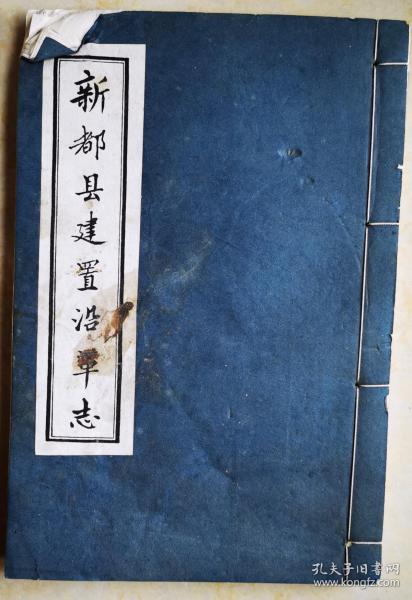 新都县建置沿革志
孔夫子旧书网
kongfz.com